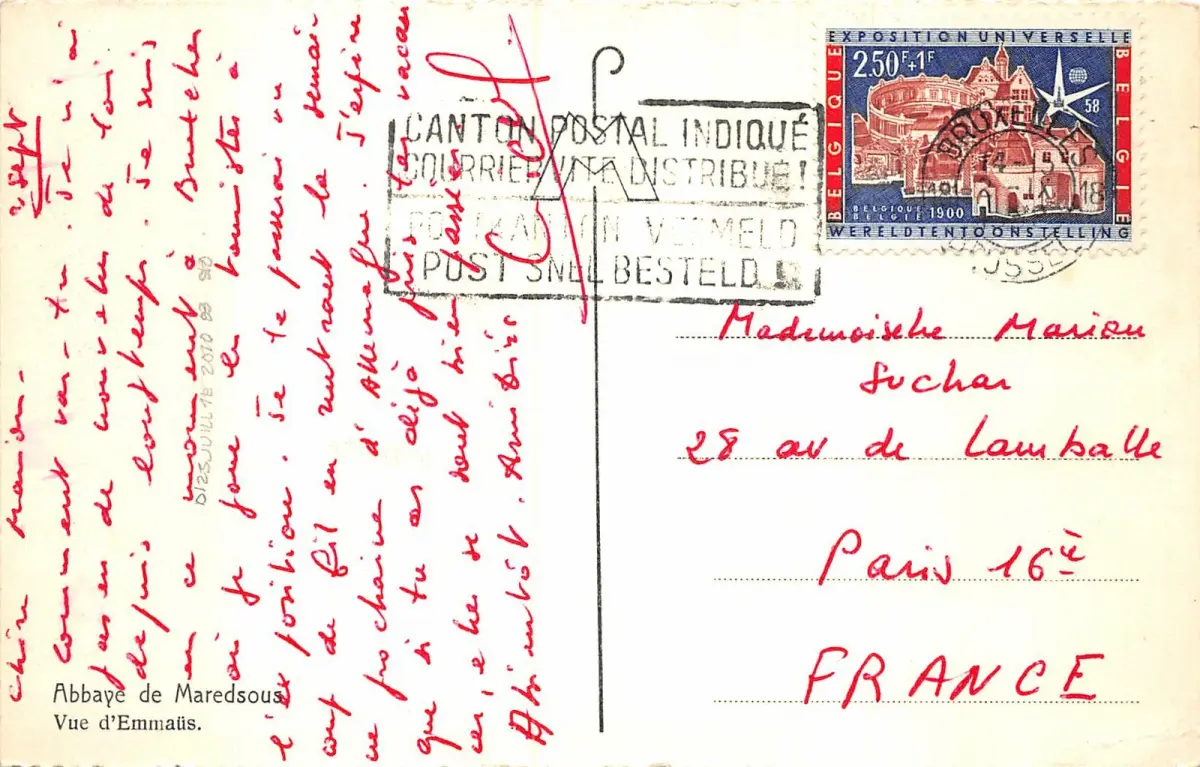 2 sept
Chère Marion -
Comment vas-tu. Je n'ai
pas eu de nouvelles de toi
depuis longtemps. Je suis
en ce moment à Bruxelles
où je joue les touristes à
l'exposition. Je te passerai un
coup de fil en rentrant la semai
ne prochaine d'Allemagne. J'espère
que si tu as déjà pris tes vacan
ces, elles se sont bien passées
A bientôt. Amitiés
Abbaye de Maredsous
Vue d'Emmaüs.
CANTON POSTAL INDIQUÉ
COURRIER VITE DISTRIBUÉ!
POSTKANTON VERMELD
POST SNEL BESTELD
EXPOSITION UNIVERSELLE
BELGIQUE
2.50F+1F
58
BELGIE
BELGIQUE 1900
BELGIE
WERELDTENTOONSTELLING
BRUXELLES
14-15
Mademoiselle Marion
Suchar
28 av de Lamballe
Paris 16è
FRANCE